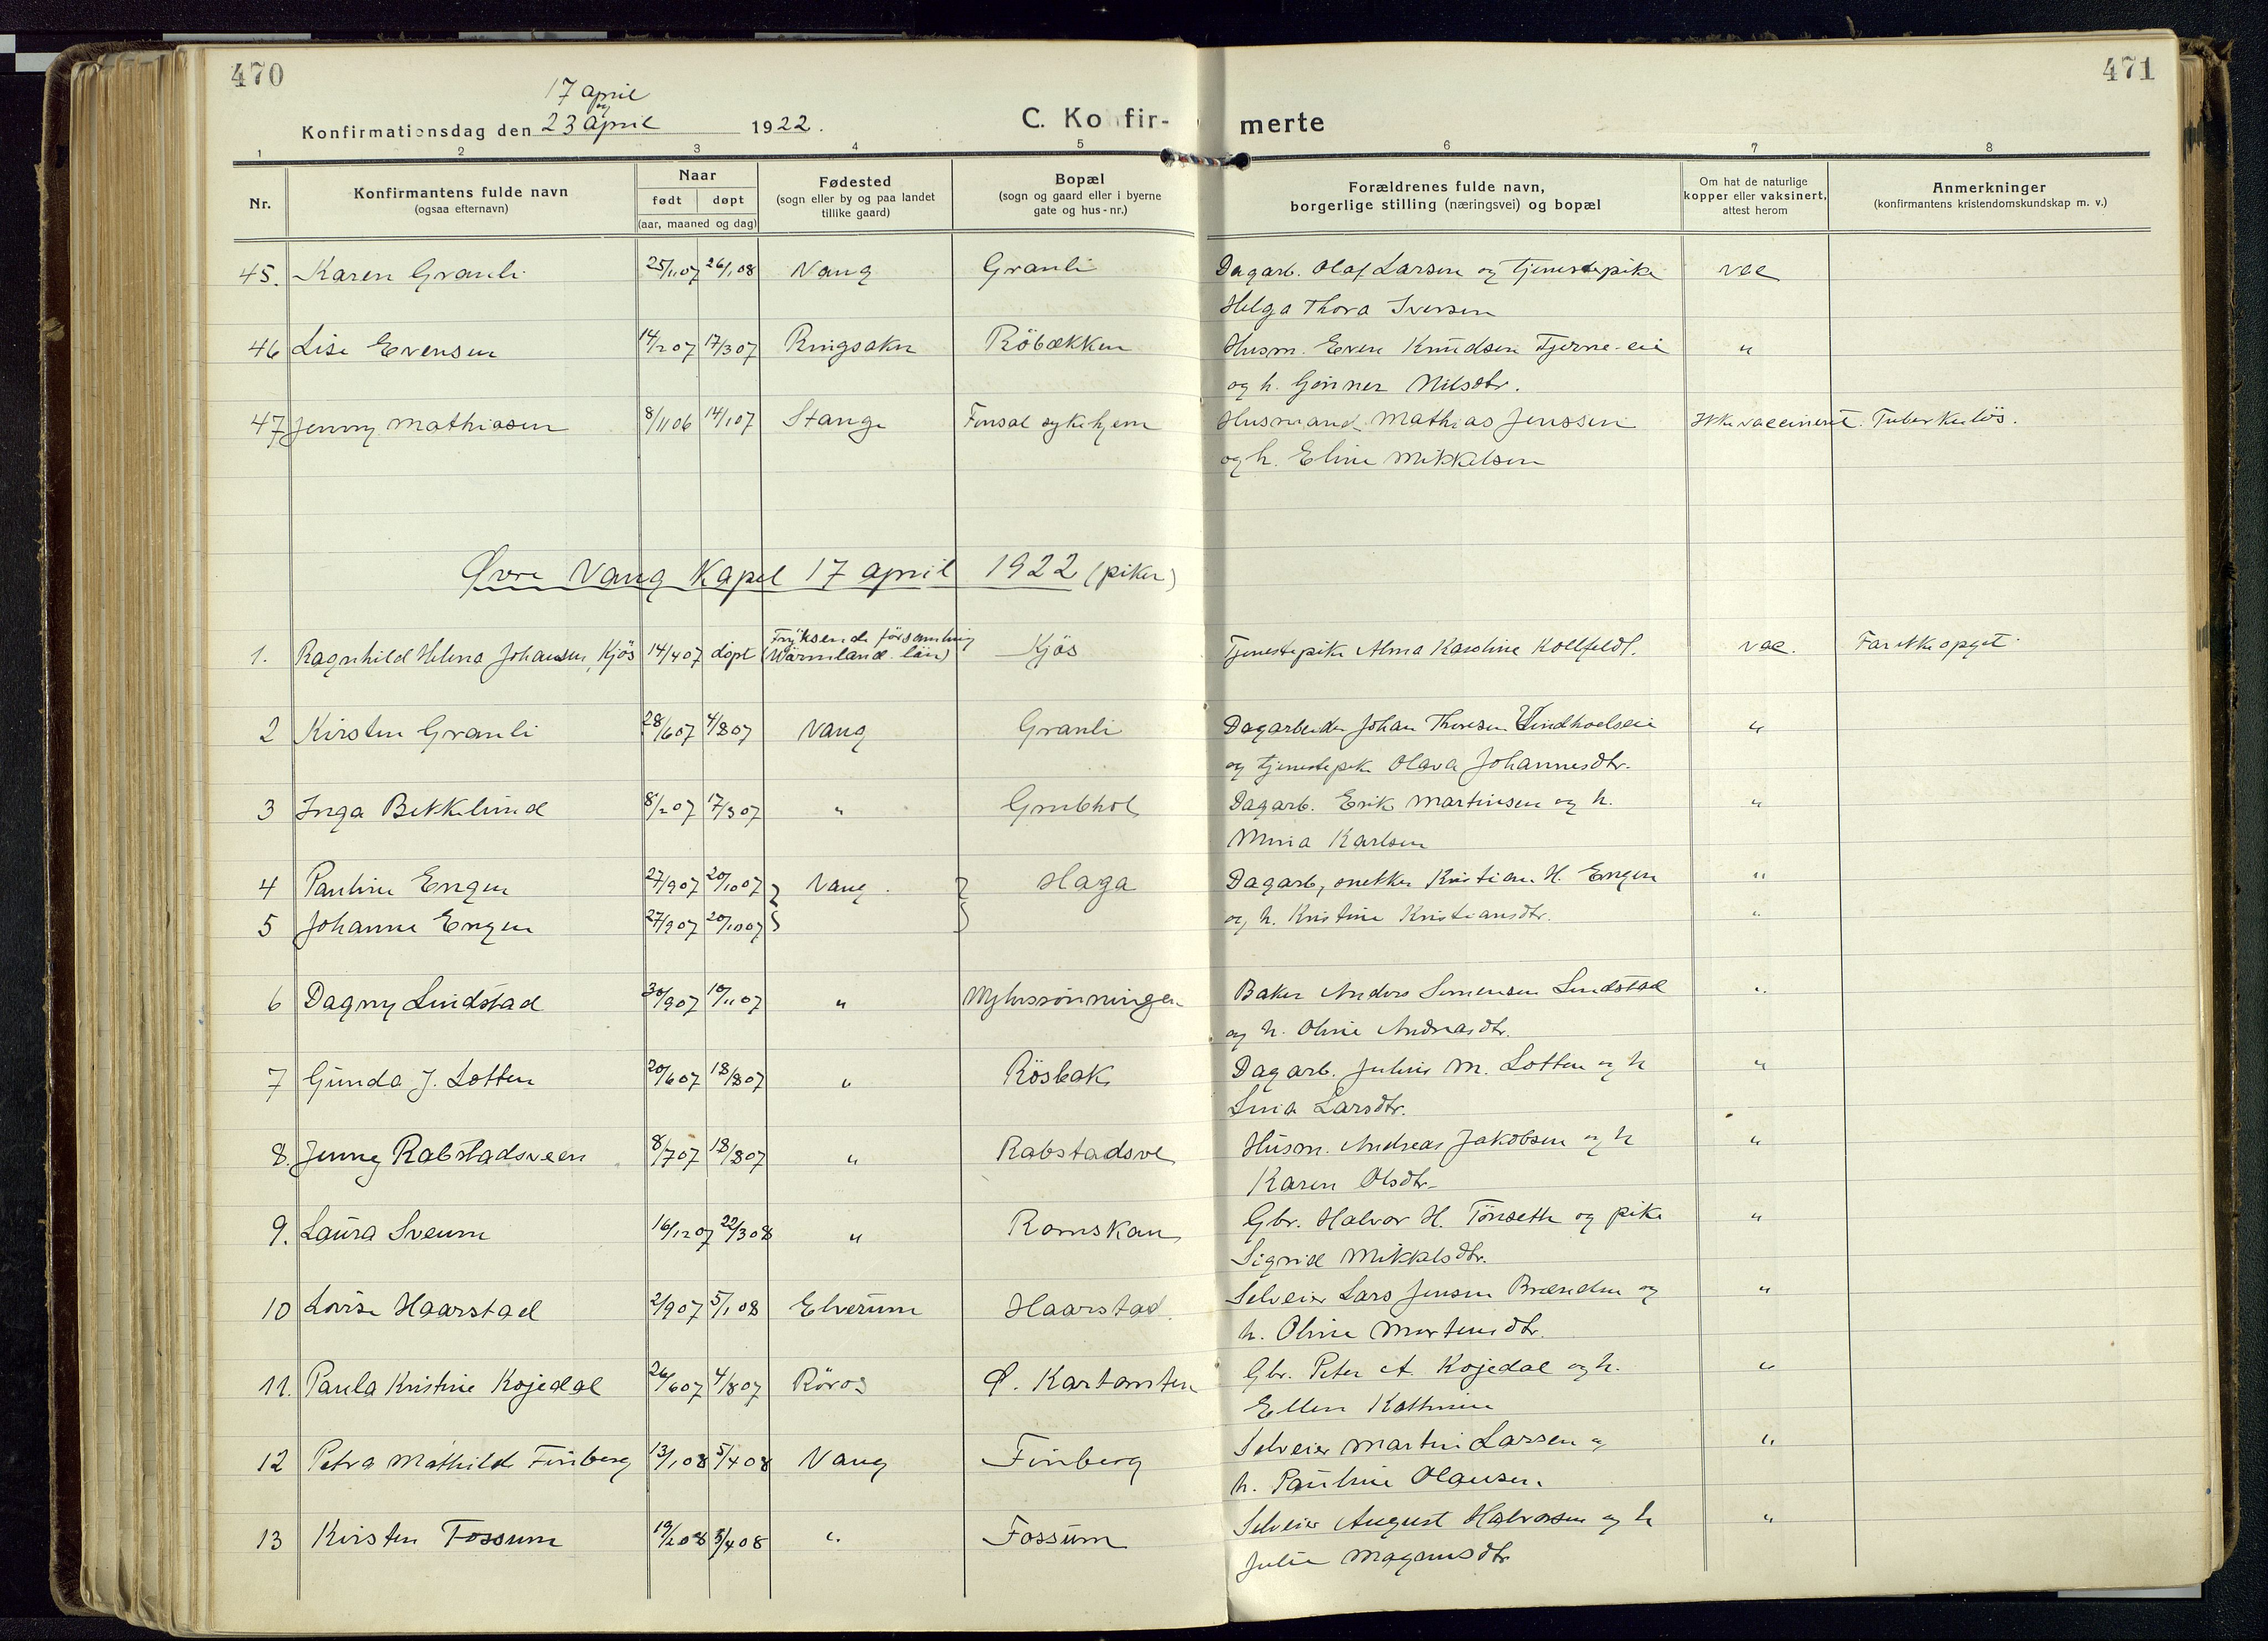 470
471
17 april
og
Konfirmationsdag den 23 april 1922.
C. Konfirmerte
1 2 3 4 5 6 7 8
Nr.
Konfirmantens fulde navn
(ogsaa efternavn)
Naar
født døpt
(aar, maaned og dag)
Fødested
(sogn eller by og paa landet
tillike gaard)
Bopæl
(sogn og gaard eller i byerne
gate og hus-nr.)
Forældrenes fulde navn,
borgerlige stilling (næringsvei) og bopæl
Om hat de naturlige
kopper eller vaksinert,
attest herom
Anmerkninger
(konfirmantens kristendomskundskap m. v.)
45. Karen Granli 25/11 07 26/1 08 Vang Granli Dagarb. Olaf Larsen og tjenestepike vac
Helga Thora Iversen
46 Lise Evensen 14/2 07 17/3 07 Ringsaker Röbækken Husm. Even Knudsen Tjerne-eie "
og h. Gunner Nilsdtr.
47 Jenny Mathiasen 8/11 06 14/1 07 Stange Finsal sykehjem Husmand Mathias Jenssen Ikke vaccinert. Tuberkulös.
og h. Eline Mikkelsen
Øvre Vang Kapel 17 april 1922 (piker)
1. Ragnhild Helena Johansen, Kjös 14/4 07 döpt Fryksende församling
(Wärmland. län) Kjös Tjenestepike Alma Karoline Kollfeldt. vac. Far ikke opgit.
2 Kirsten Granli 28/6 07 4/8 07 Vang Granli Dagarbeider Johan Thoresen Windhoelseie "
og tjenestepike Olava Johannesdtr.
3 Inga Bekkelund 8/2 07 17/3 07 " Grubhol Dagarb. Erik Martinsen og h. "
Mina Karlsen
4 Pauline Engen 27/9 07 20/10 07 Vang. Haga Dagarb, snekker Kristian H. Engen "
5 Johanne Engen 27/9 07 20/10 07 og h. Kristine Kristiansdtr. "
6 Dagny Lindstad 30/9 07 10/11 07 " Baker Anders Simensen Lindstad "
og h. Oline Andreasdtr.
7 Gunda J. Lotten 20/6 07 18/8 07 " Rösbak Dagarb. Julius M. Lotten og h "
Lina Larsdtr.
8. Jenny Rabstadsveen 8/7 07 18/8 07 " Rabstadsve Husm. Andreas Jakobsen og h "
Karen Olsdtr.
9. Laura Sveum 16/12 07 22/3 08 " Romskau Gbr. Halvor H. Tönseth og pike "
Sigrid Mikkelsdtr.
10 Lovise Haarstad 2/9 07 5/1 08 Elverum Haarstad Selveier Lars Jensen Brænden og "
h. Oline Mortensdtr.
11. Paula Kristine Kojedal 26/6 07 4/8 07 Röros Ø. Kartomten Gbr. Peter A. Kojedal og h. "
Ellen Kathrine
12 Petra Mathilde Finberg 13/1 08 5/4 08 Vang Finberg Selveier Martin Larsen og "
h. Pauline Olausen.
13 Kirsten Fossum 19/2 08 5/4 08 " Fossum Selveier August Halvorsen og h "
Julie Magnusdtr